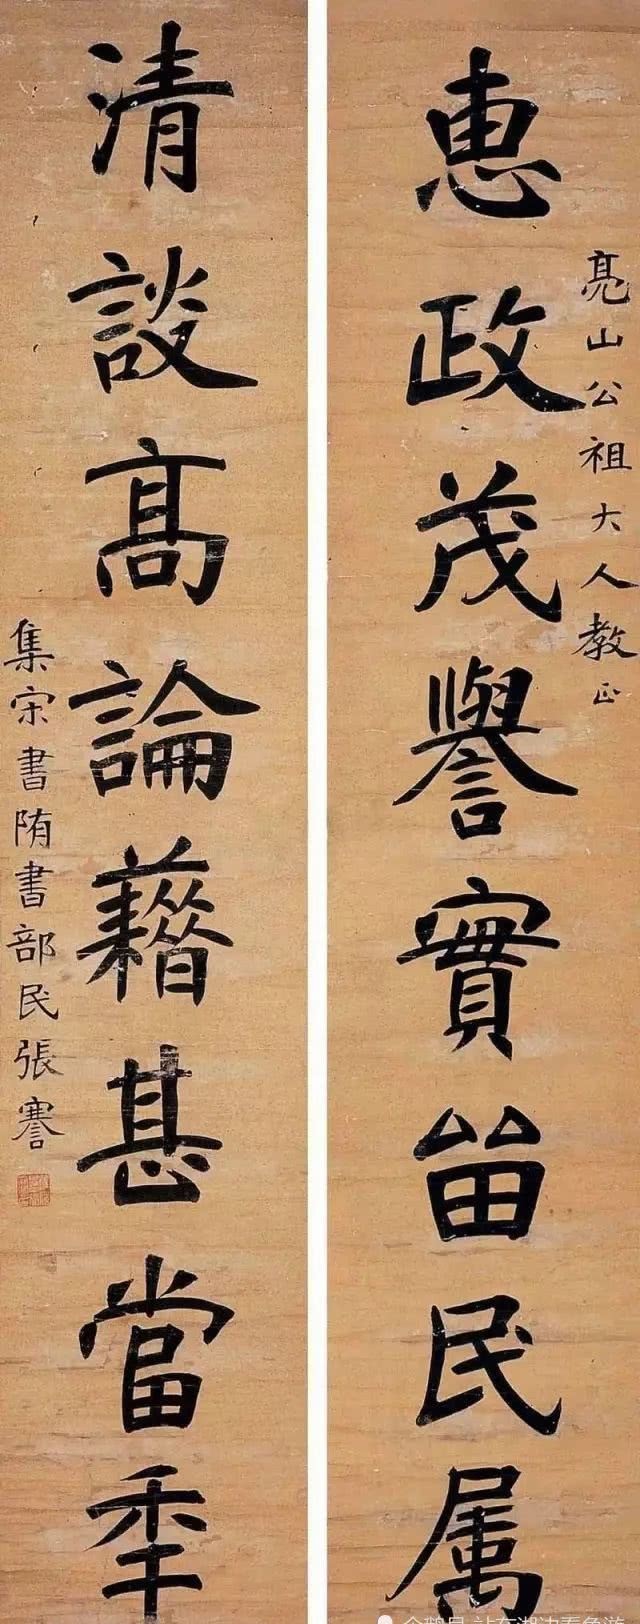 惠政茂譽實留民属
亮山公祖大人教正
清談髙論藉甚當秊
集宋書隋書部民張謇